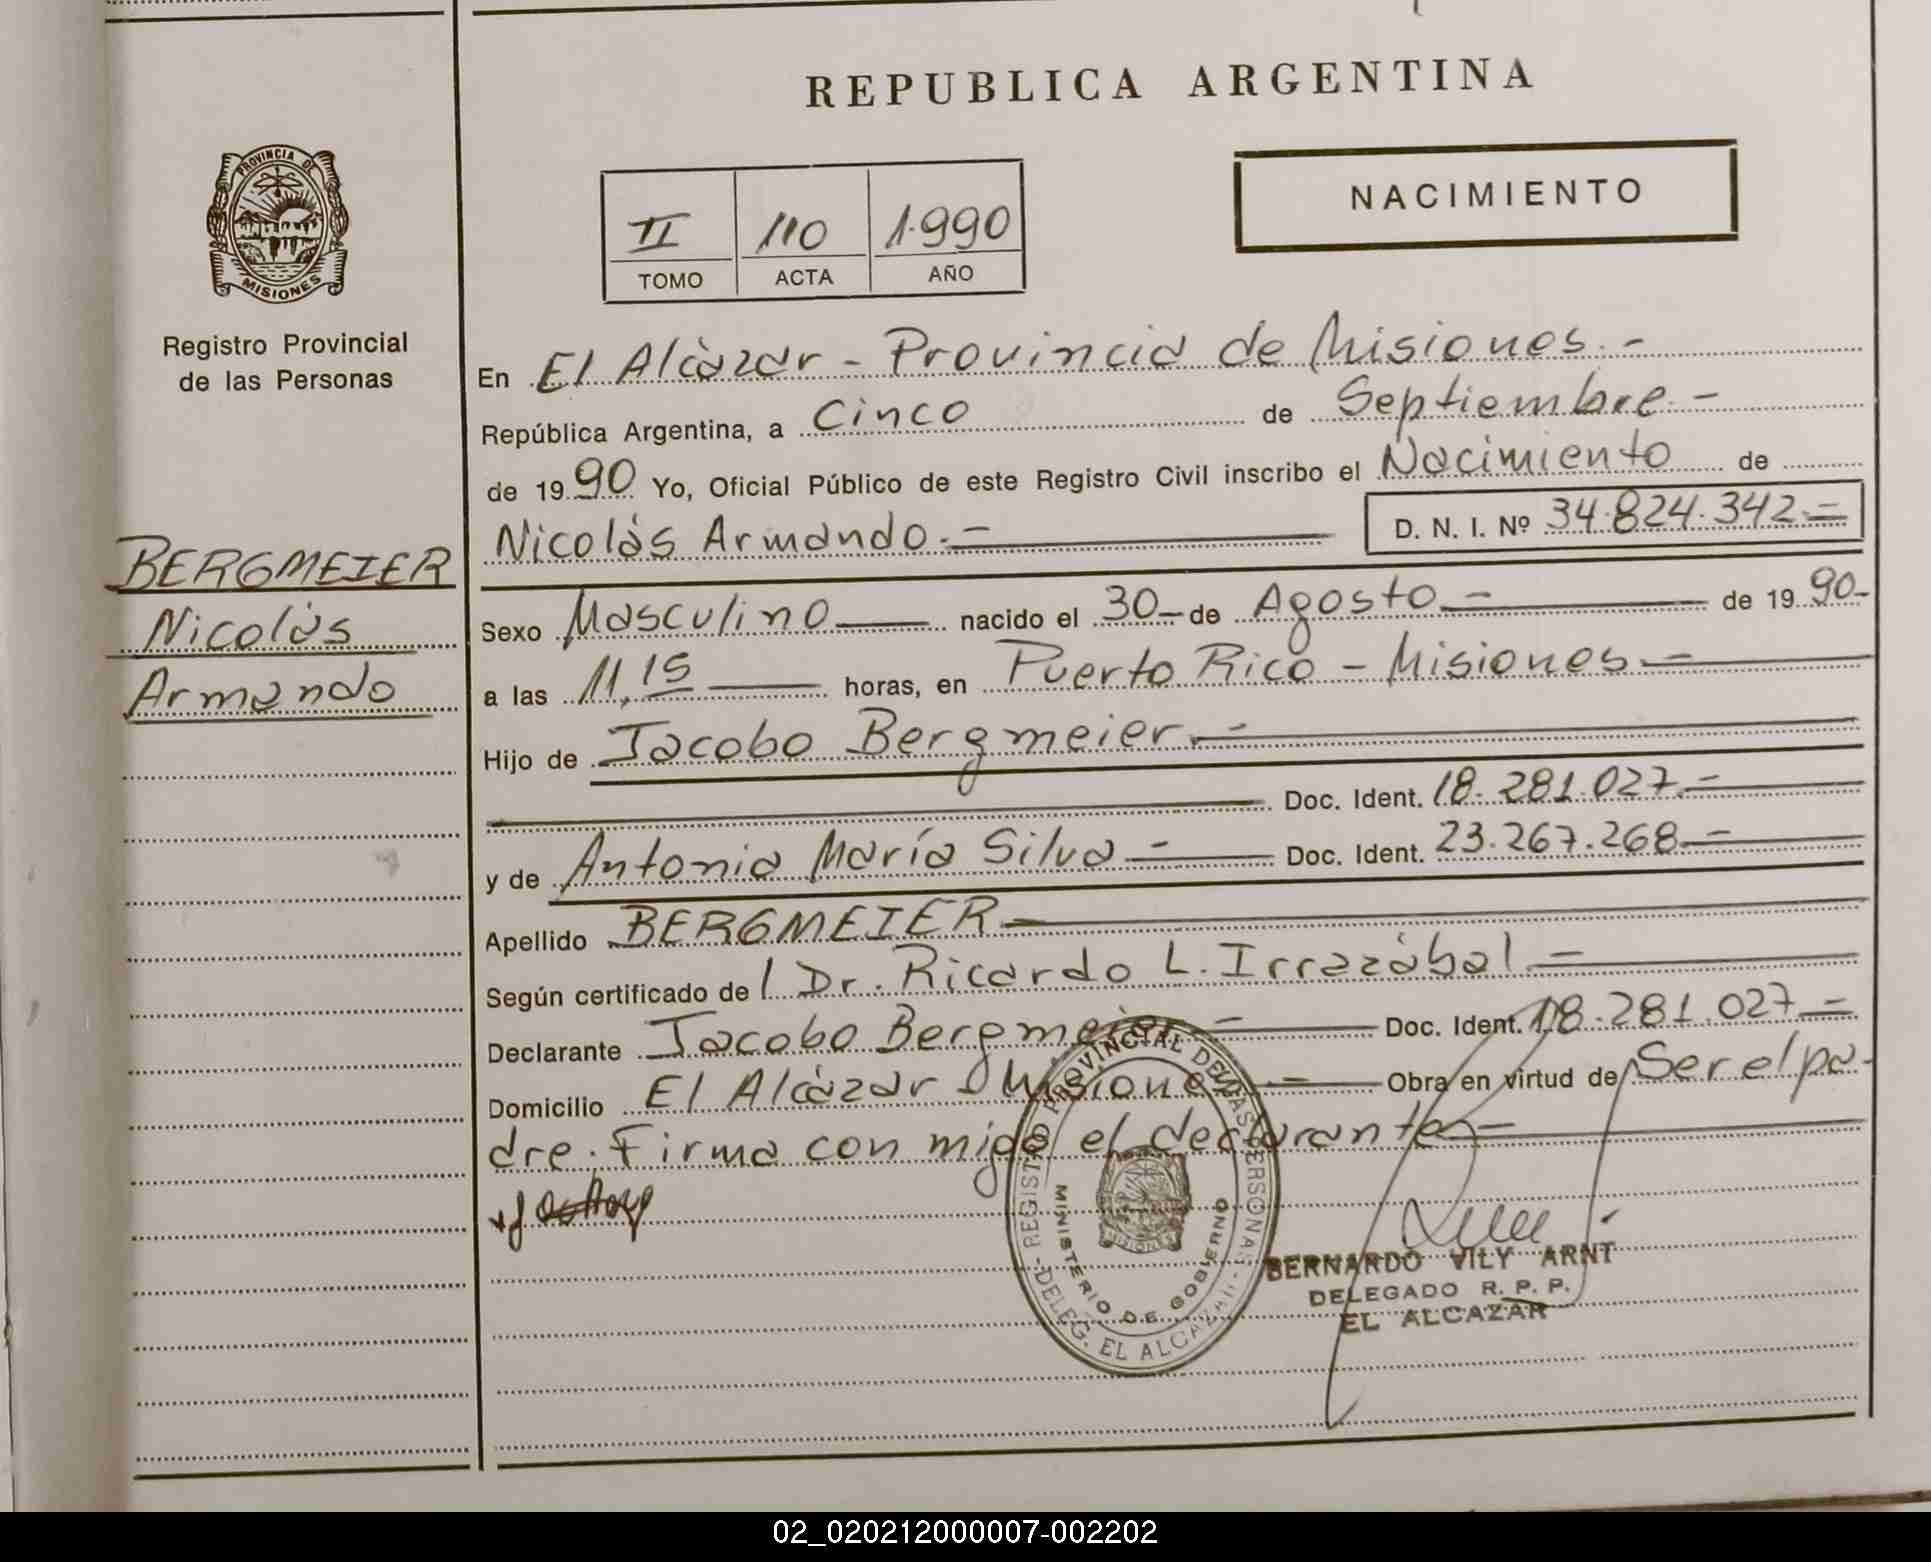 REPUBLICA ARGENTINA
PROVINCIA DE
MISIONES
Registro Provincial
de las Personas
NACIMIENTO
II 110 1.990
TOMO ACTA AÑO
En El Alcàzar - Provincia de Misiones.-
República Argentina, a Cinco de Septiembre.-
de 1990 Yo, Oficial Público de este Registro Civil inscribo el Nacimiento de
Nicolàs Armando.- D. N. I. Nº 34.824.342.=
BERGMEIER
Nicolàs
Armando
Sexo Masculino nacido el 30 - de Agosto.- de 1990-
a las 11,15 horas, en Puerto Rico - Misiones.-
Hijo de Jacobo Bergmeier.-
Doc. Ident. 18.281.027.-
y de Antonia María Silva - Doc. Ident. 23.267.268.-
Apellido BERGMEIER -
Según certificado de / Dr. Ricardo L. Irrazàbal.-
Declarante Jacobo Bergmeier - Doc. Ident. 18.281.027 -
Domicilio El Alcàzar - Misiones - Obra en virtud de Ser el pa-
dre. Firma con migo el declarante -
REGISTRO PROVINCIAL DE LAS PERSONAS
MINISTERIO DE GOBIERNO
MISIONES
-DELEG. EL ALCAZAR-
BERNARDO VILY ARNT
DELEGADO R. P. P.
EL ALCAZAR
02_020212000007-002202